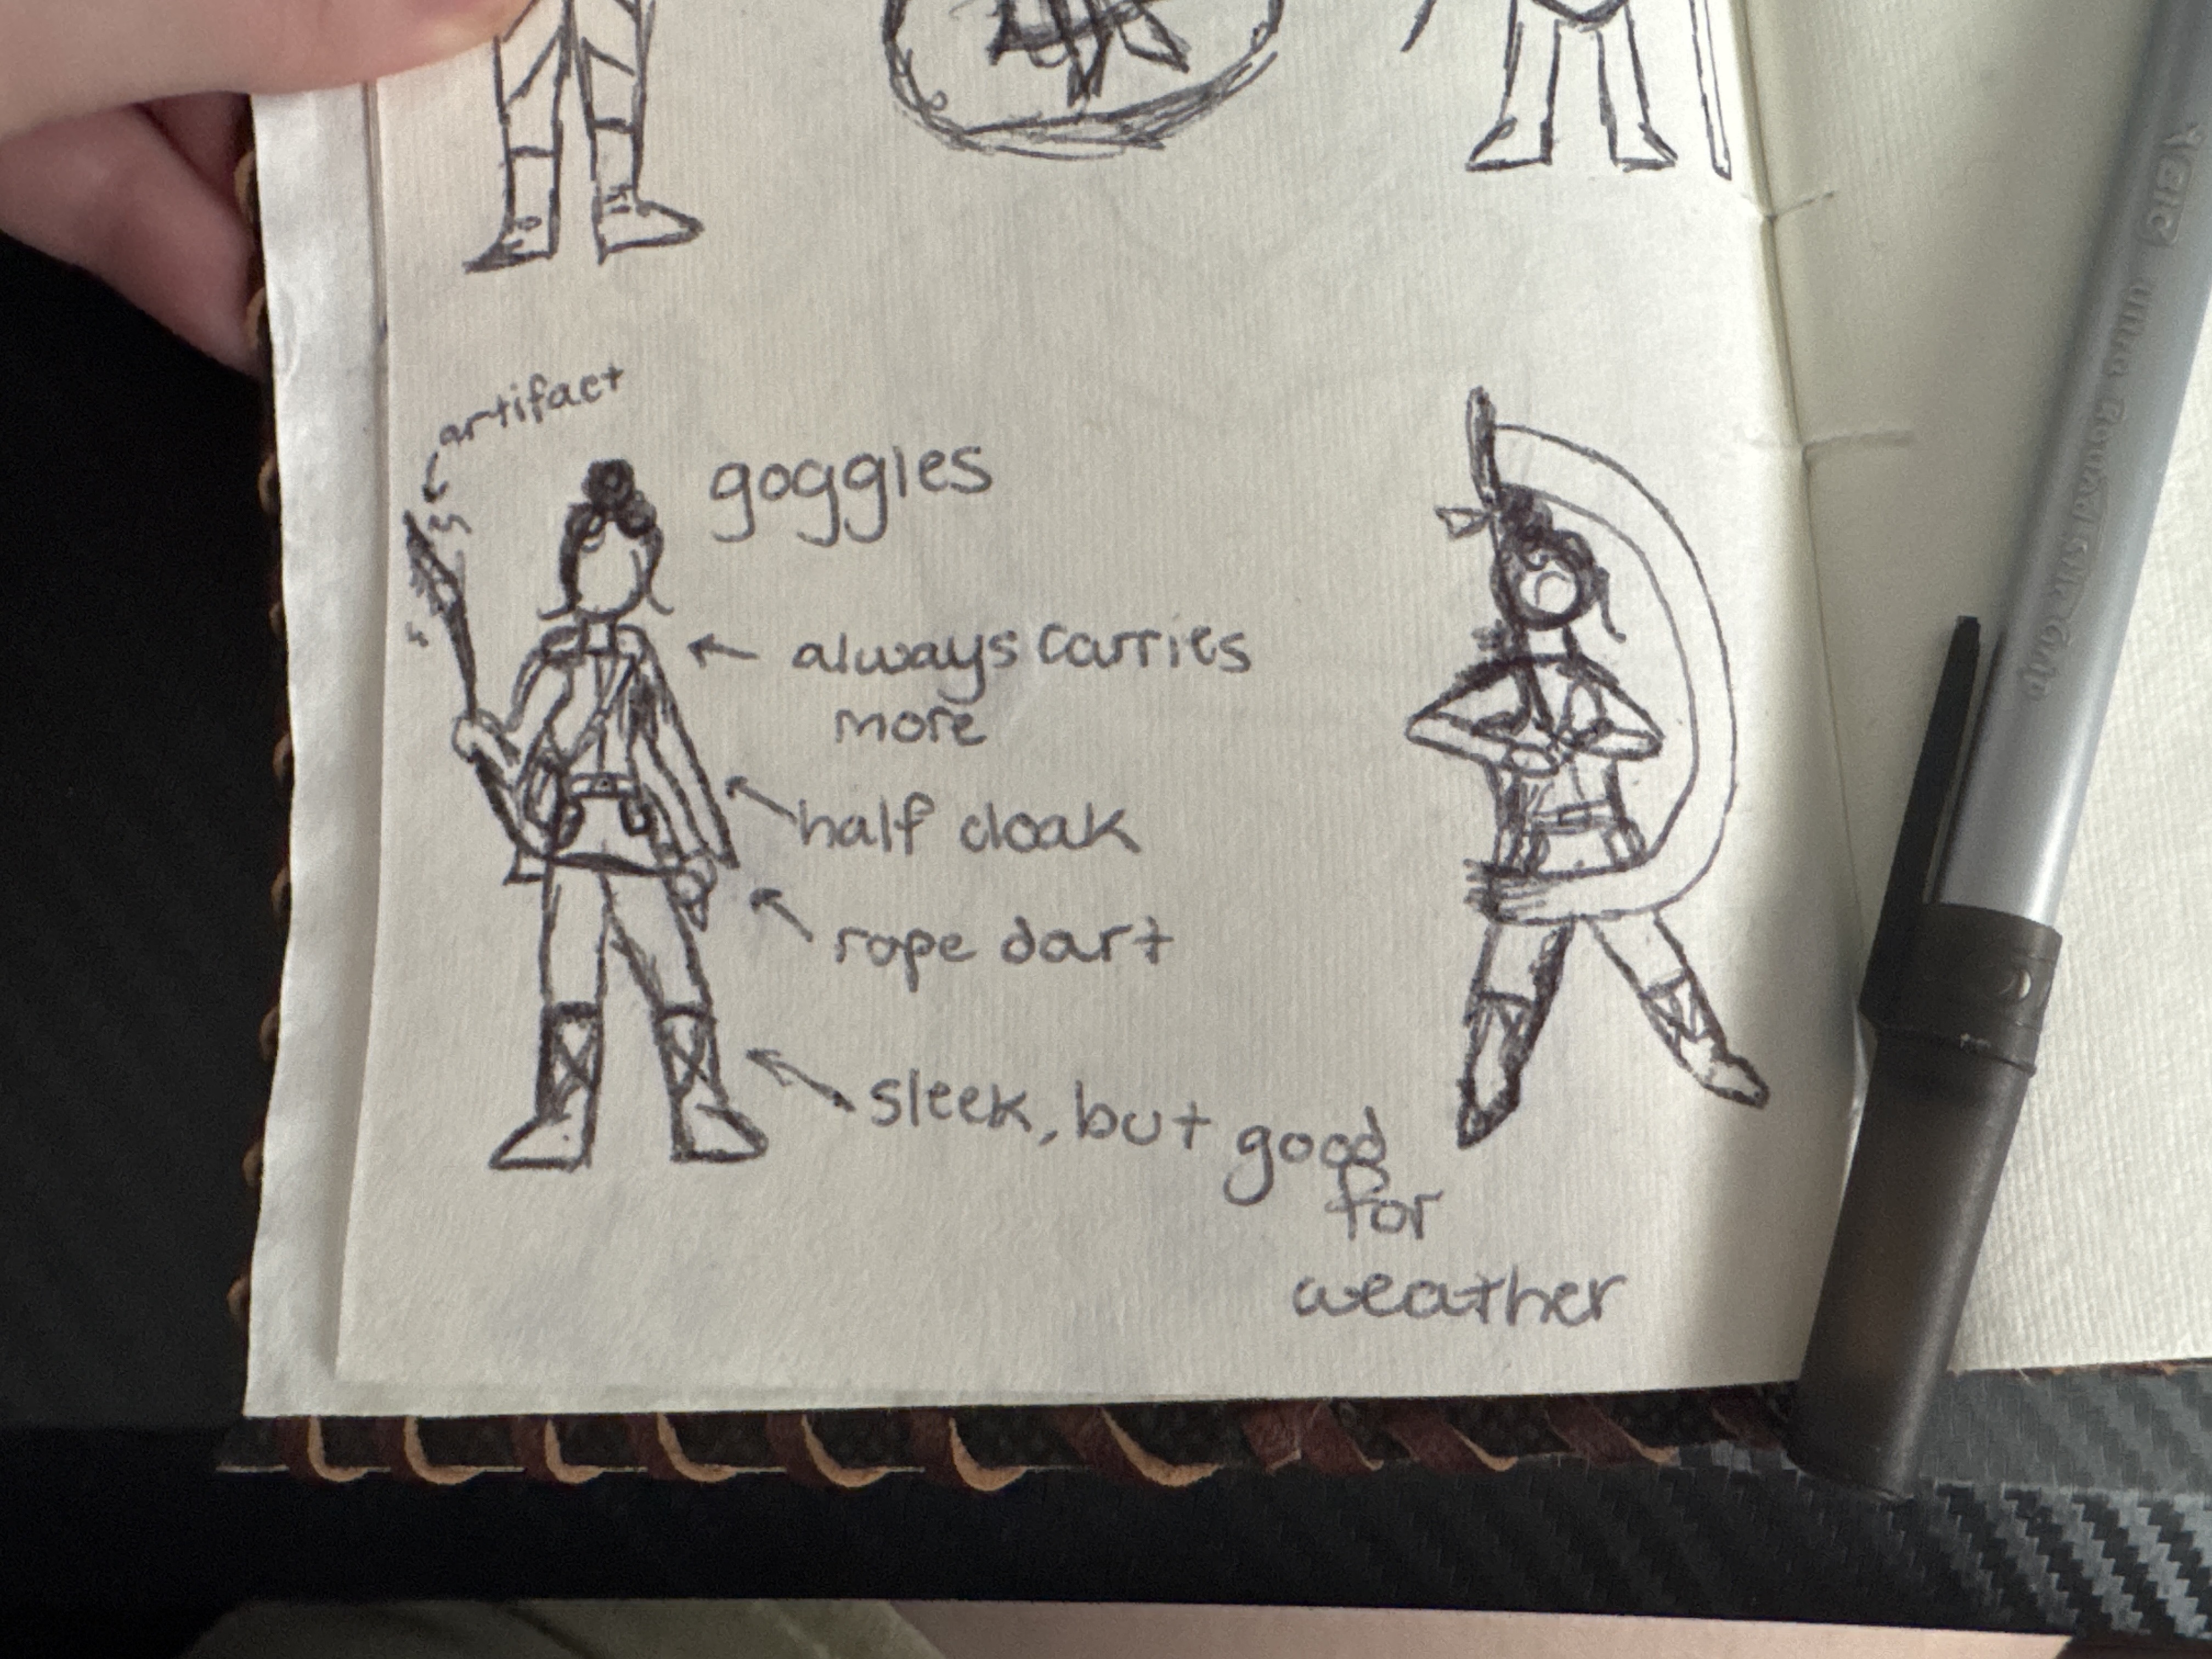 artifact
goggles
always carries
more
half cloak
rope dart
sleek, but good
for
weather
BIC